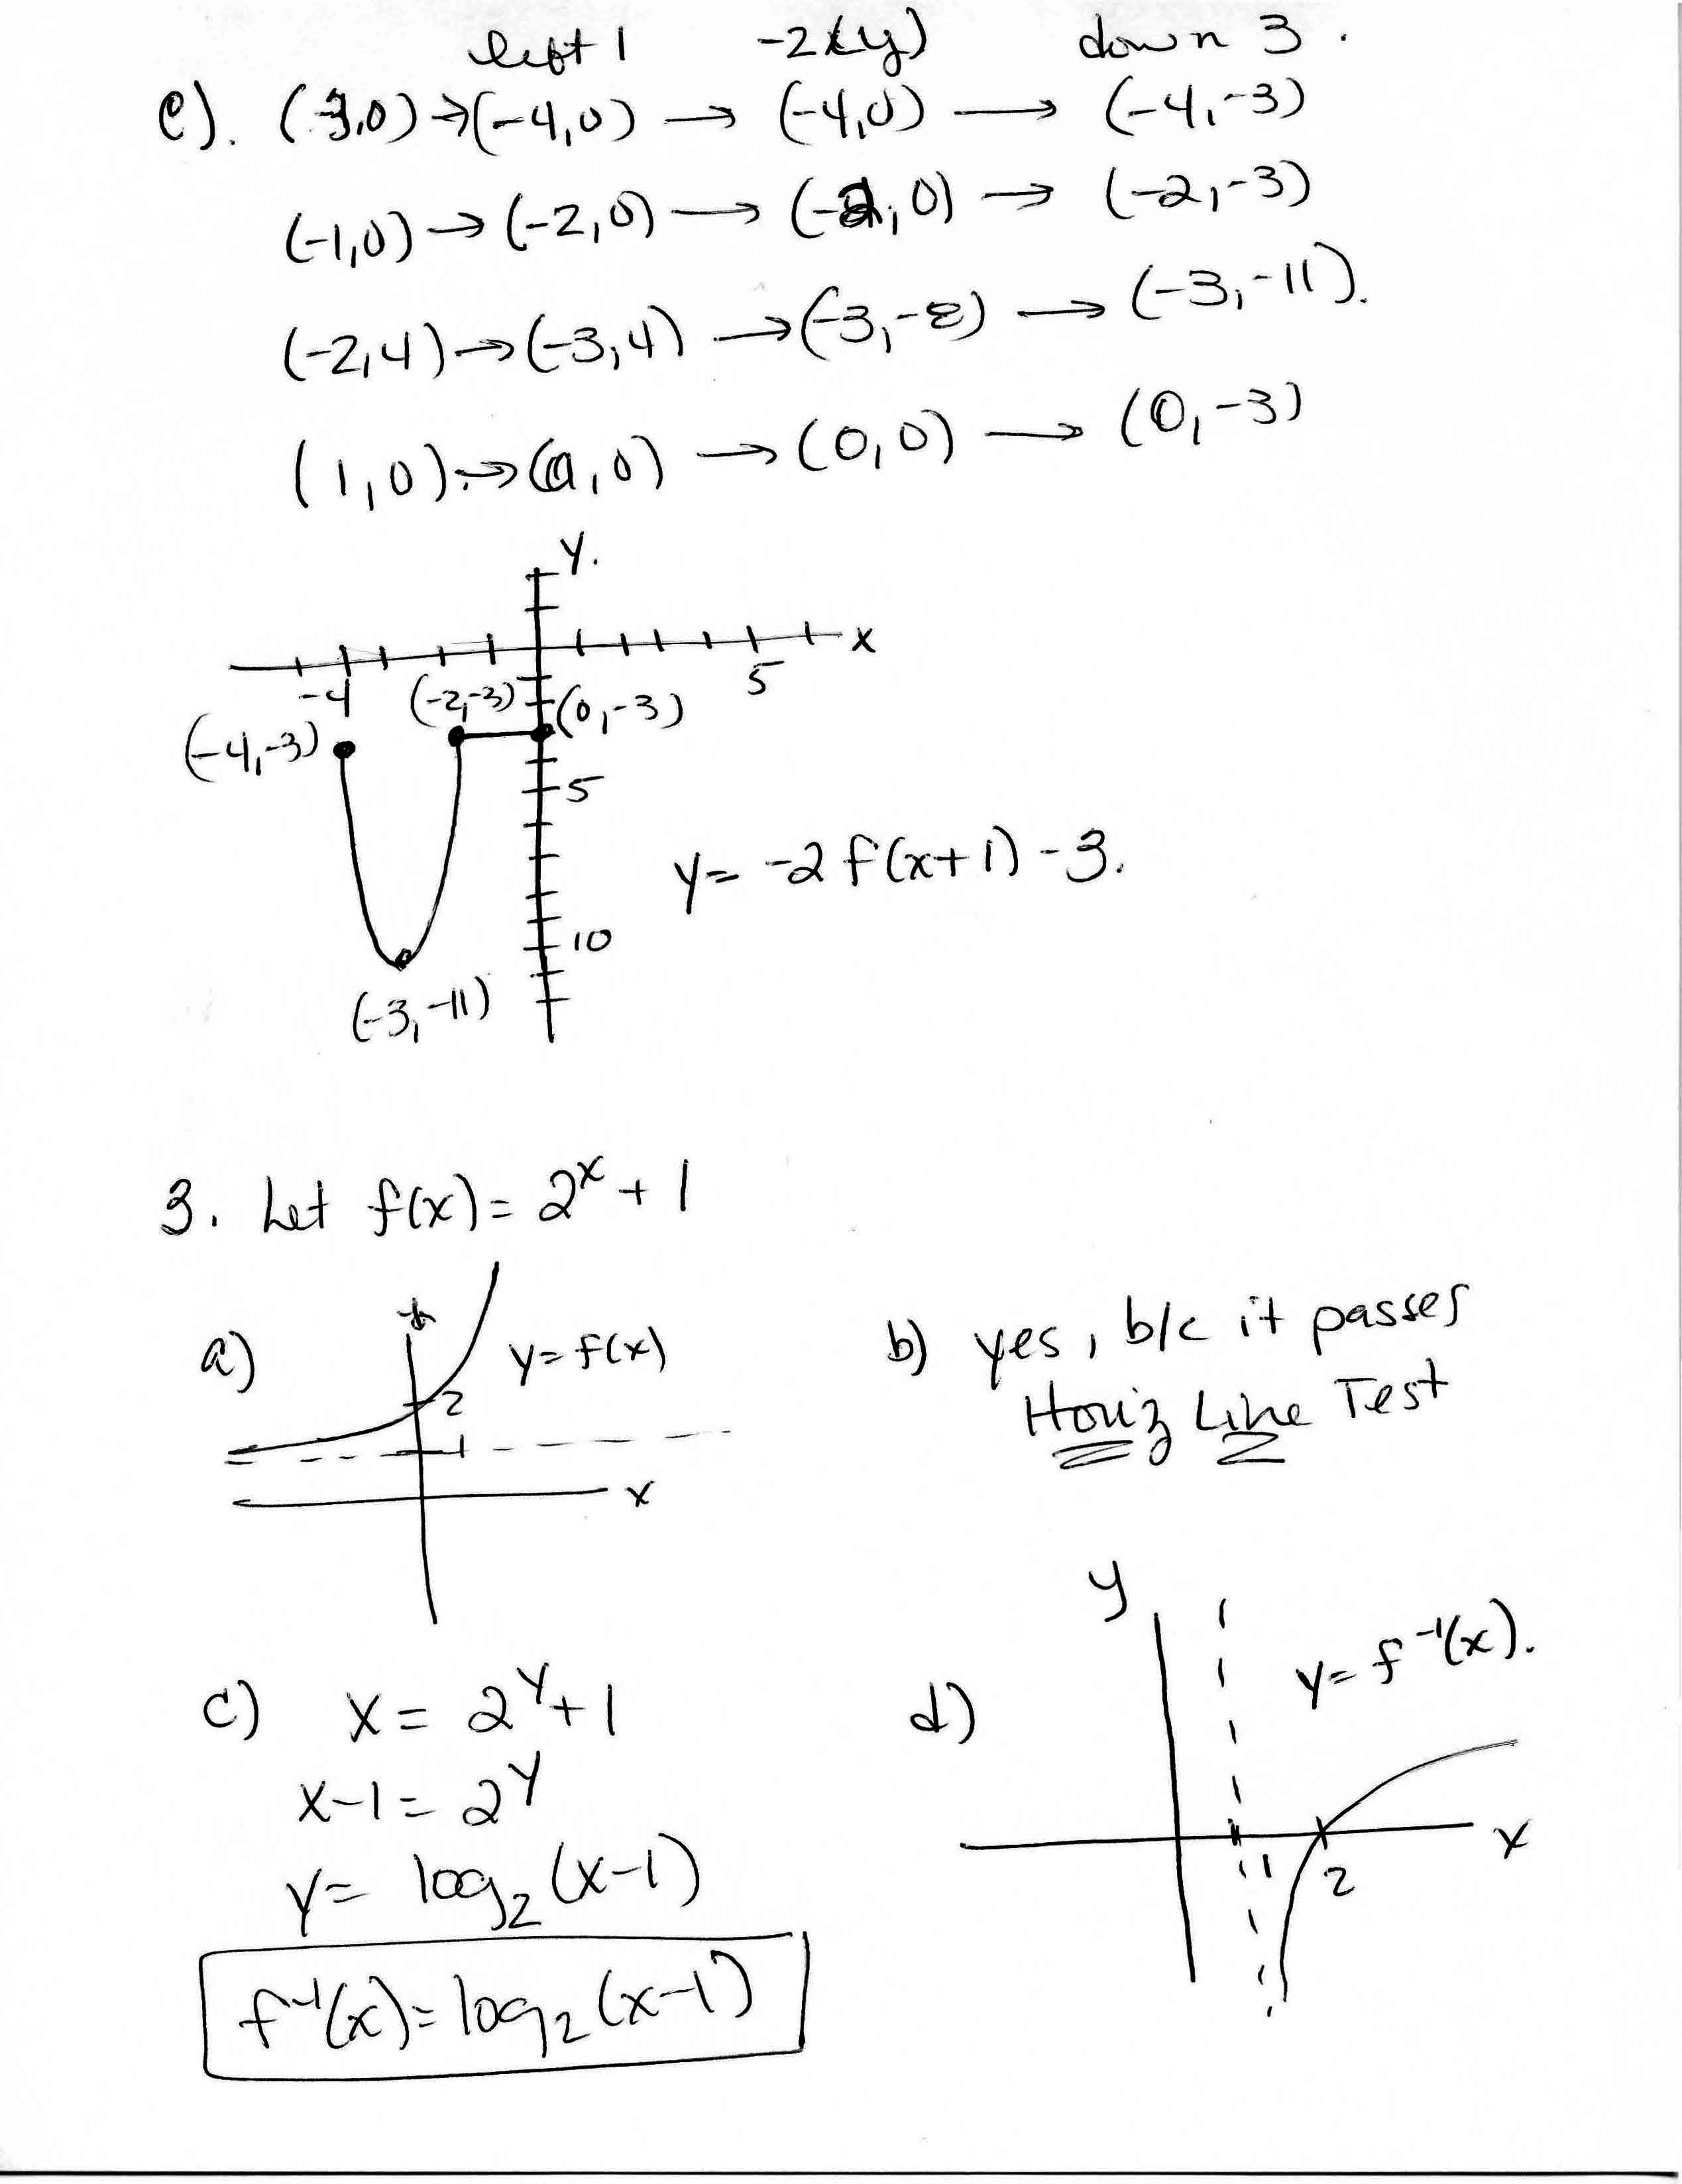 left 1 -2(y) down 3.
e). (-3,0) → (-4,0) → (-4,0) → (-4,-3)
(-1,0) → (-2,0) → (-2,0) → (-2,-3)
(-2,4) → (-3,4) → (-3,-8) → (-3,-11).
(1,0) → (0,0) → (0,0) → (0,-3)
y.
x
-4 (-2,-3) (0,-3) 5
(-4,-3)
5
y = -2 f(x+1) - 3.
10
(-3,-11)
3. Let f(x) = 2^x + 1
a) y = f(x)
2
1
x
b) yes, b/c it passes
Horiz Line Test
c) x = 2^y + 1
x-1 = 2^y
y = log_2 (x-1)
f^-1(x) = log_2 (x-1)
d) y
y = f^-1(x).
x
1 2